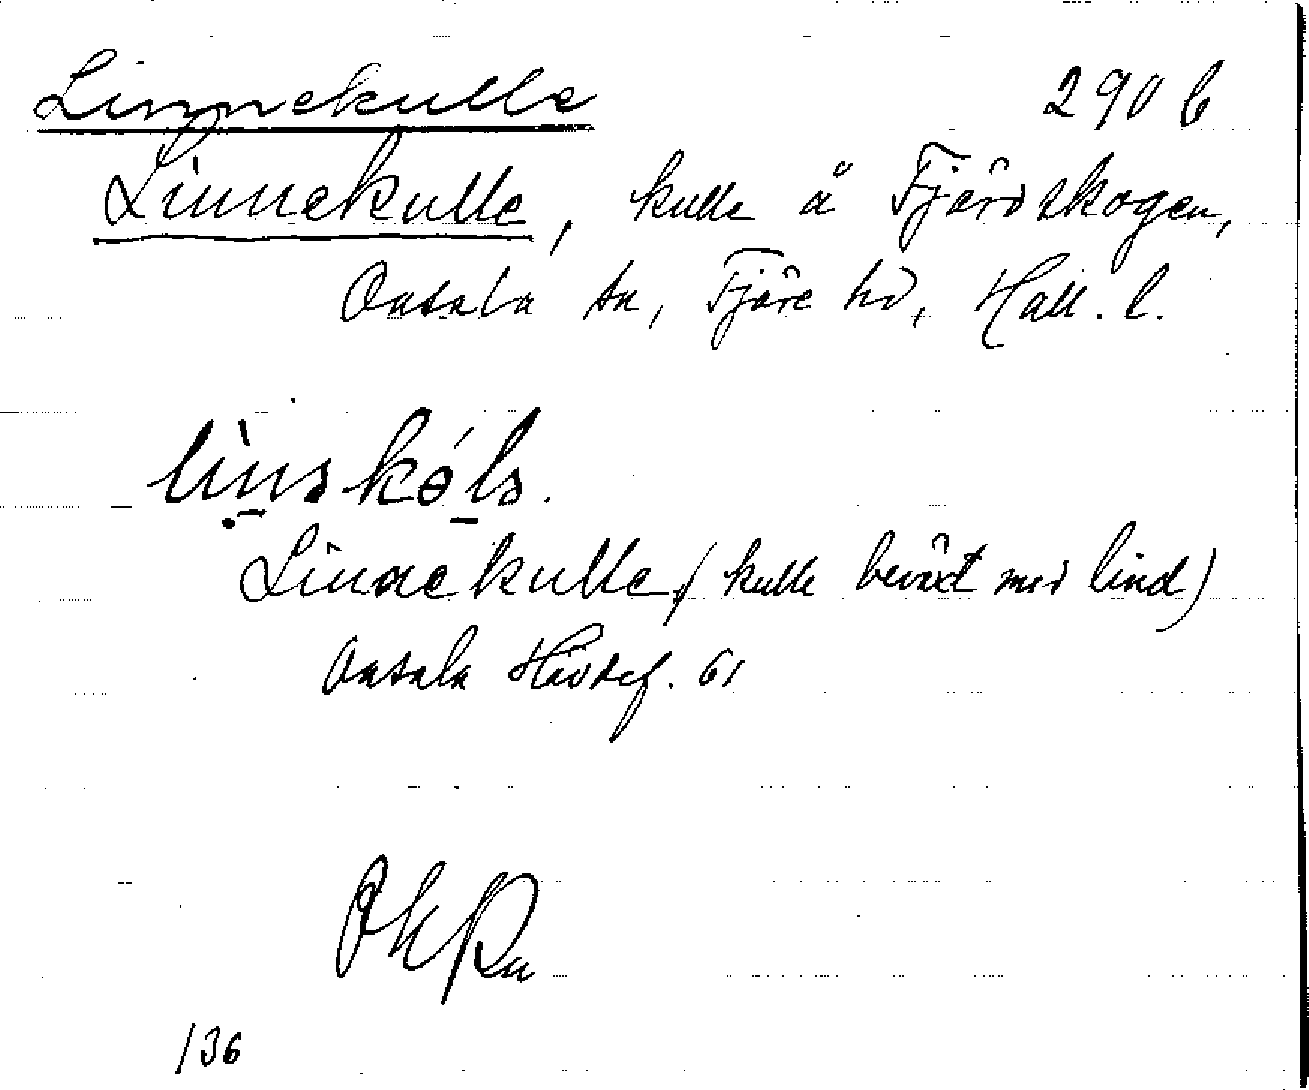 Linnekulle 290 b
Linnekulle, kulle å Fjärdskogen,
Onsala sn, Fjäre hd, Hall. l.
Linnekulle (kulle beväxt med lind)
Onsala Hfvdef. 61
/36